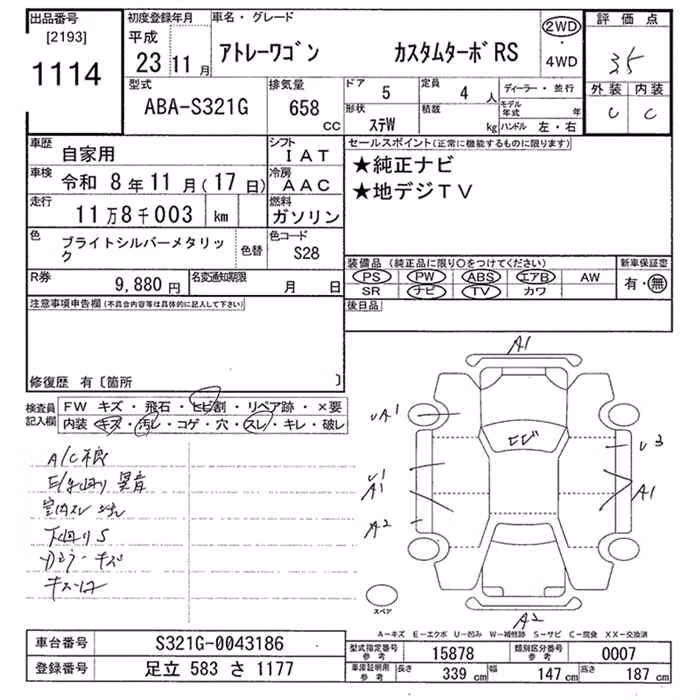 出品番号
[2193]
1114
初度登録年月
平成
23 11月
車名・グレード
アトレーワゴン カスタムターボRS
2WD
・
4WD
評価点
3.5
外装 内装
C C
型式
ABA-S321G
排気量
658
cc
ドア
5
定員
4 人
形状
ステW
積数
kg
ディーラー・並行
モデル年式 年
ハンドル 左・右
車歴
自家用
シフト
IAT
車検
令和 8年 11月(17日)
冷房
AAC
走行
11万8千003 km
燃料
ガソリン
色
ブライトシルバーメタリック
色替
色コード
S28
R券
9,880円
名変通知期限
月 日
セールスポイント(正常に機能するものに限ります)
★純正ナビ
★地デジTV
装備品(純正品に限り○をつけてください)
PS PW ABS エアB AW
SR ナビ TV カワ
新車保証書
有・無
後日品
注意事項申告欄(不具合内容等は具体的に記入して下さい)
修復歴 有〔箇所 〕
検査員記入欄
FW キズ・飛石・ヒビ割・リペア跡・×要
内装 キズ・汚レ・コゲ・穴・スレ・キレ・破レ
A/C不良
異音
下廻りS
A1
UA1
ヒビ
U3
U1
A1
A1
A2
A2
スペア
A−キズ E−エクボ U−凹み W−補修跡 S−サビ C−腐食 XX−交換済
車台番号
S321G-0043186
登録番号
足立 583 さ 1177
型式指定番号
参考
15878
類別区分番号
参考
0007
車庫証明用
参考
長さ
339 cm
幅
147 cm
高さ
187 cm